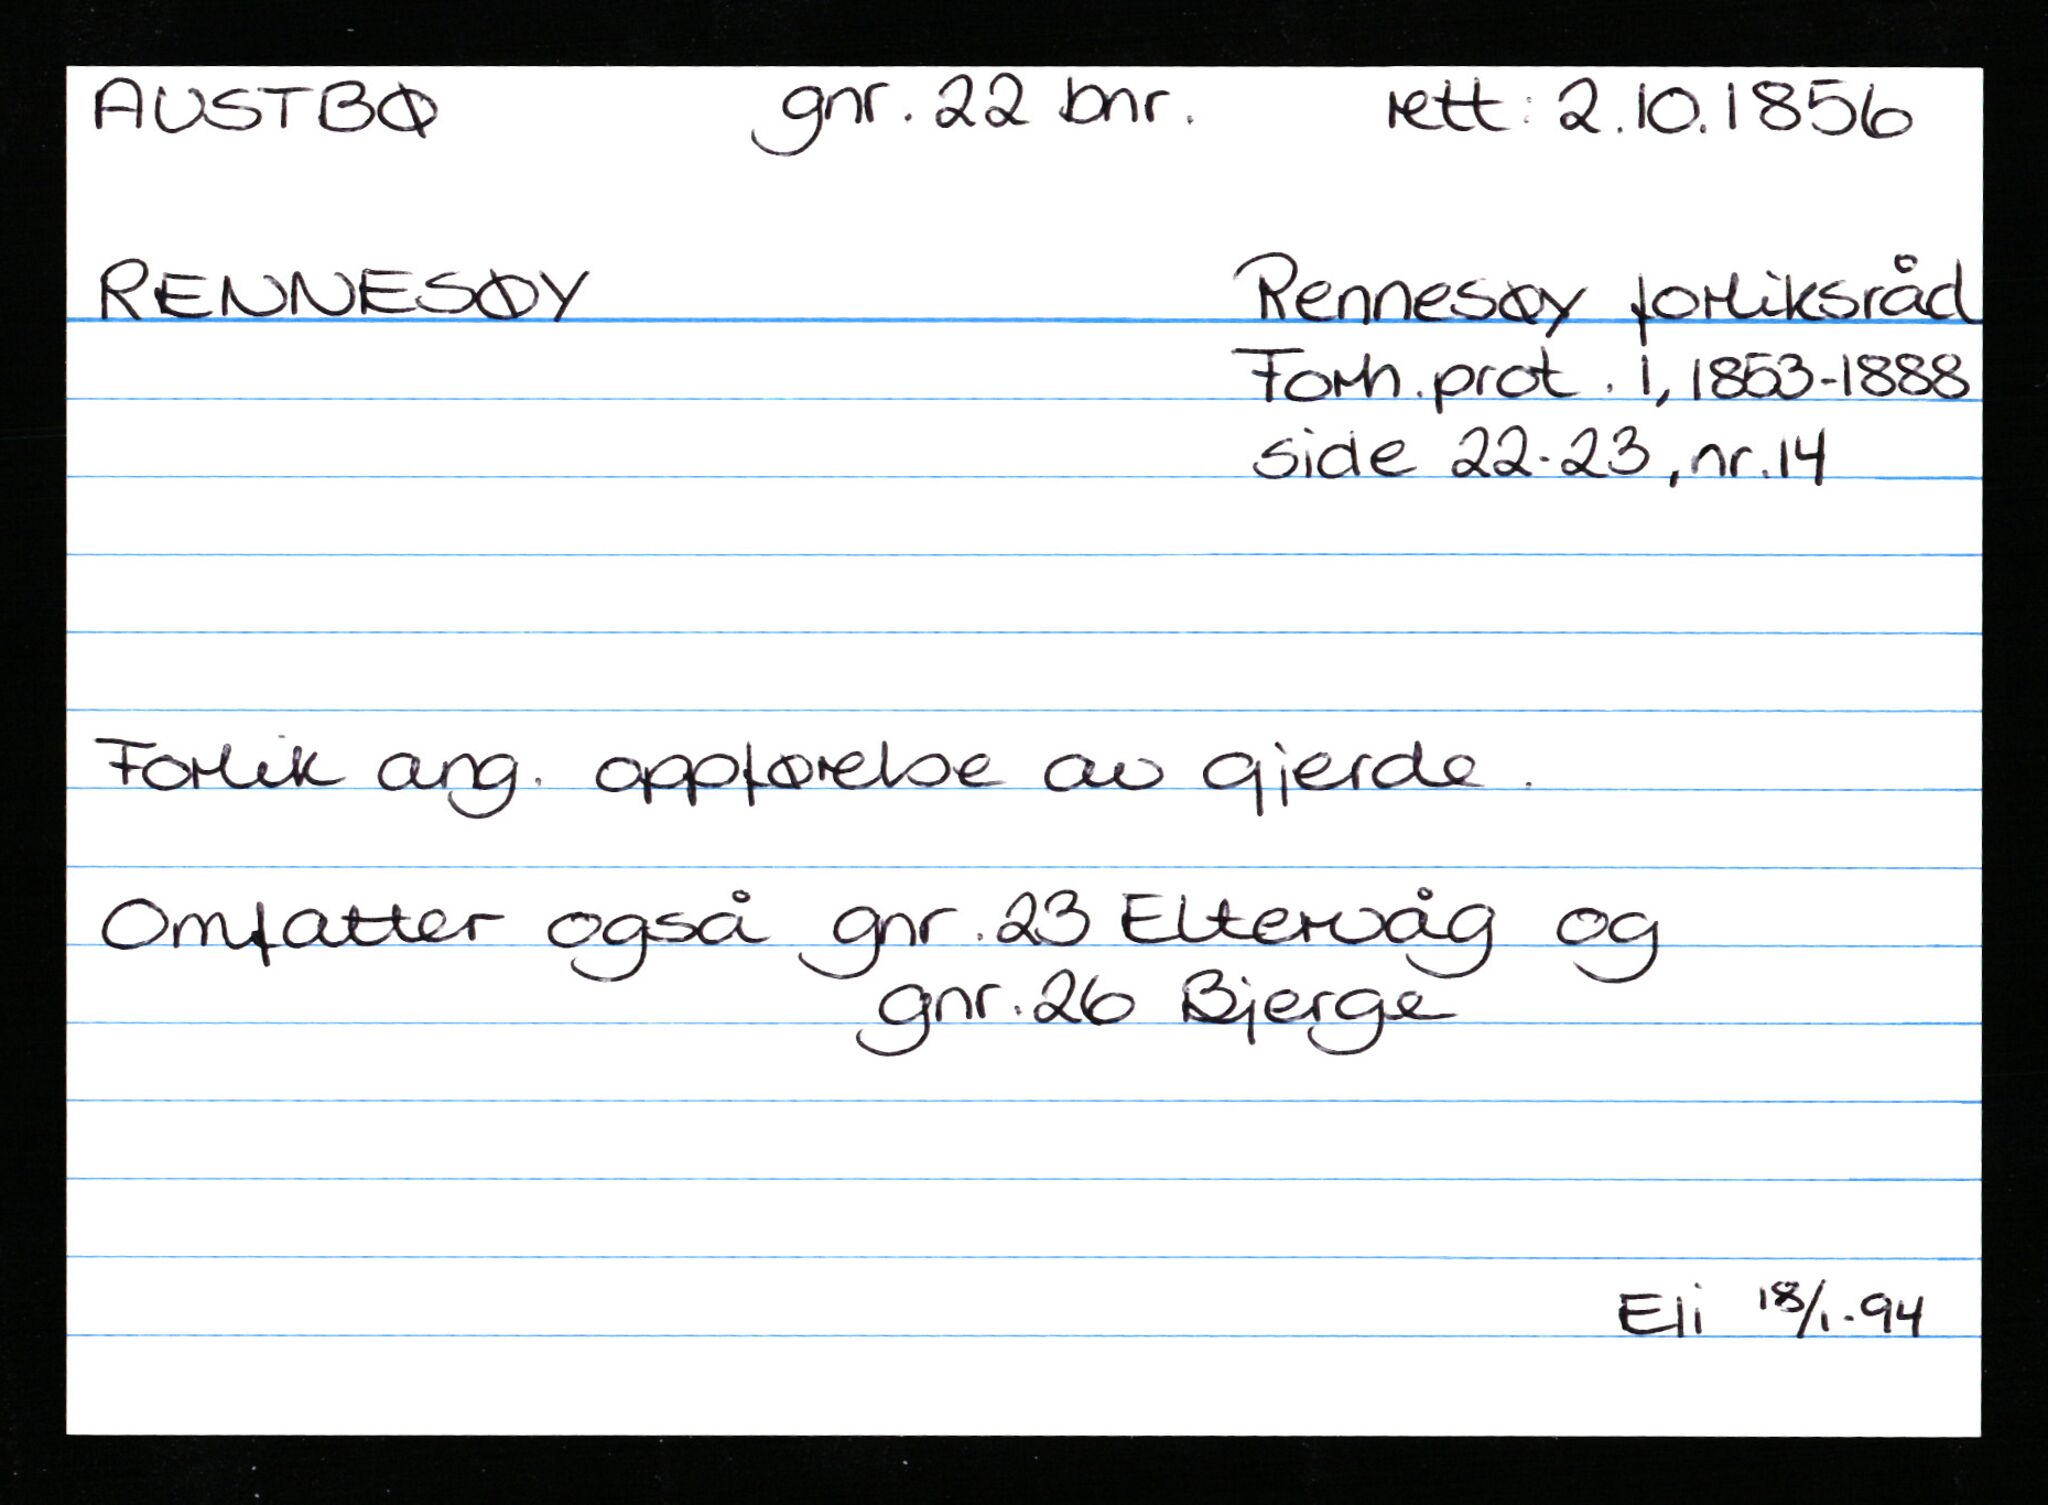 AUSTBØ gnr. 22 bnr. rett: 2.10.1856
RENNESØY Rennesøy forliksråd
Forh. prot. 1, 1853-1888
side 22-23, nr. 14
Forlik ang. oppførelse av gjerde.
Omfatter også gnr. 23 Eltervåg og
gnr. 26 Bjerge
Eli 18/1-94